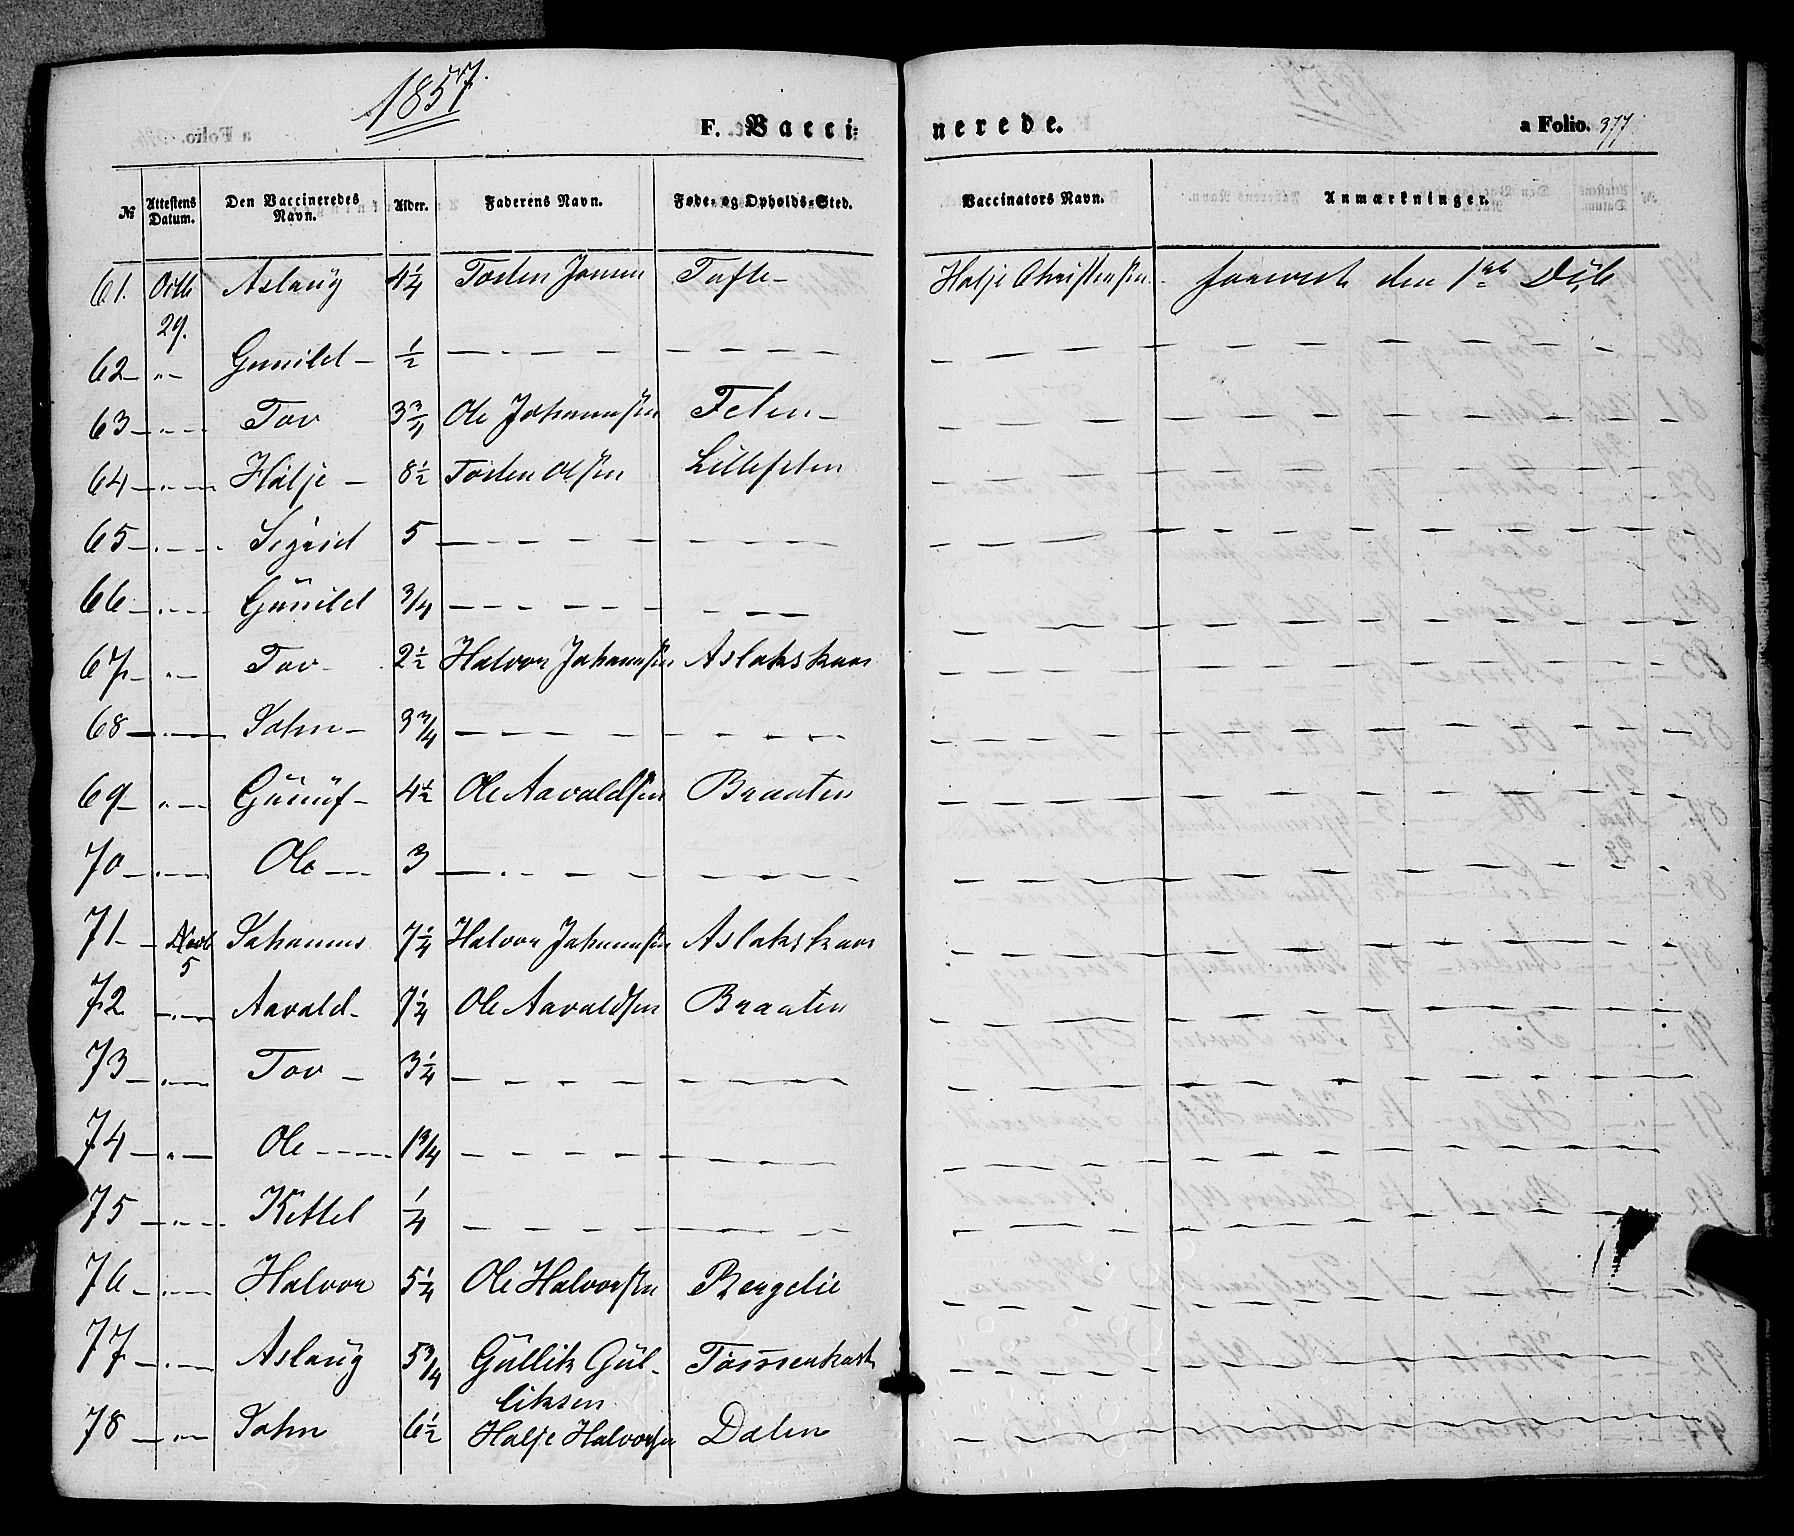 1857.
F. Vacci=
nerede.
a Folio. 377
№ Attestens Datum. Den Vaccineredes Navn. Alder. Faderens Navn. Føde= og Opholds=Sted. Vaccinators Navn. Anmærkninger.
61. Octb 29. Aslaug 4 1/4 Tosten Jonsen Tofte - Halje Christensen
62 - " - Gunild - 1/2 — — — — — —
63 - " - Tov 3 3/4 Ole Johannesen Felen -
64 - " - Halje - 8 1/2 Tosten Olsen Lillefelen
65 - " - Sigrid 5 — — — — — —
66 - " - Gunild 3/4 — — — — — —
67 - " - Tov - 2 1/2 Halvor Johannsen Aslakskaas
68 - " - John - 3 3/4 — — — — — —
69 - " - Gunuf - 4 1/2 Ole Aavaldsen Braaten
70 - " - Ole - 3 — — — — — —
71 - Novb 5 Johannes 7 1/4 Halvor Johannsen Aslakskaas
72 - " - Aavald - 7 1/4 Ole Aavaldsen Braaten
73 - " - Tov - 3 1/4 — — — — — —
74 - " - Ole - 1 3/4 — — — — — —
75 - " - Kittel 1/4 — — — — — —
76 - " - Halvor 5 1/4 Ole Halvorsen Bergelie
77 - " - Aslaug 5 3/4 Gullik Gul-
liksen
78 - " - John 6 1/2 Halje Halvorsen Dalen